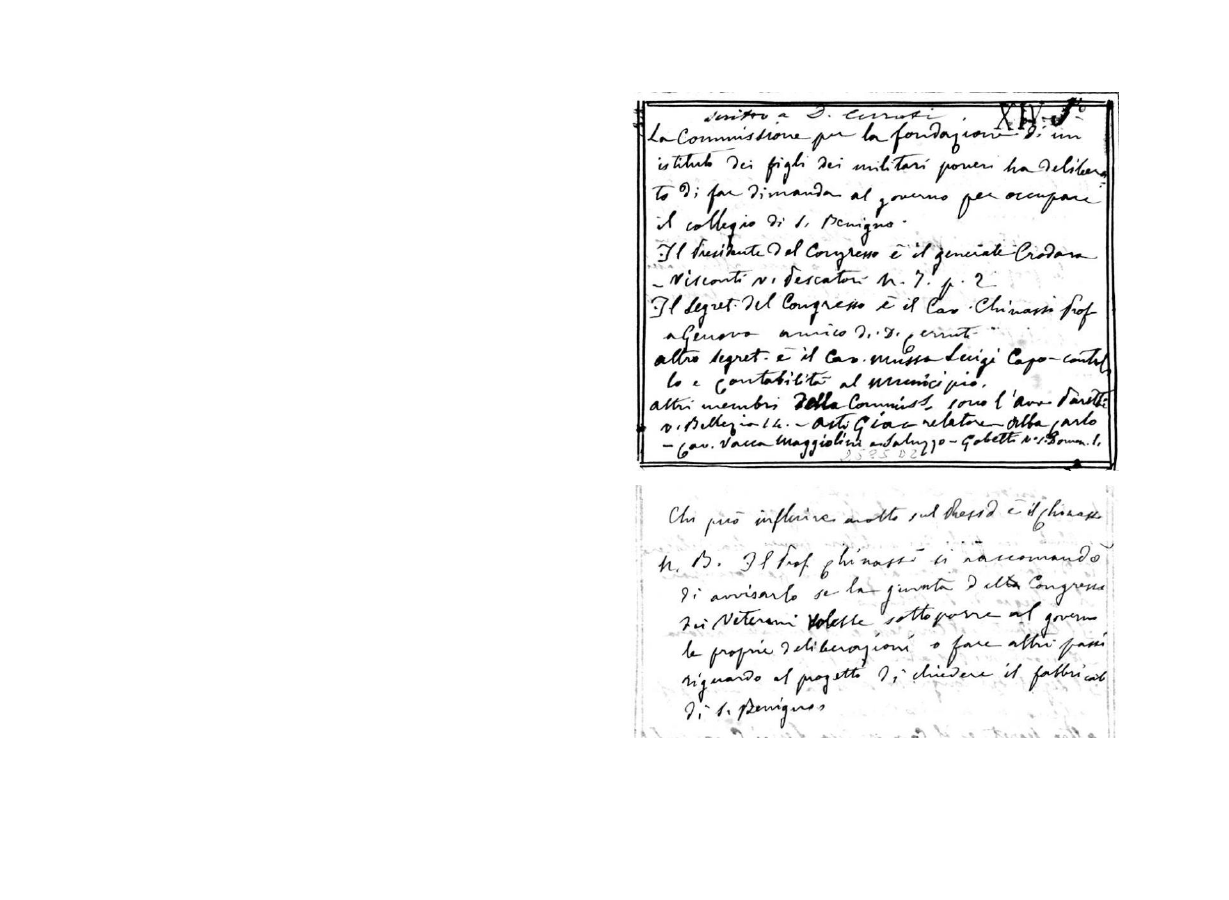 scritto a D. Cerruti XIV. 5°
La Commissione per la fondazione di un
istituto dei figli dei militari poveri ha delibera
to di far dimanda al governo per occupare
il collegio di S. Benigno.
Il Presidente del Congresso è il generale Crodara
- Visconti v. Pescatori N. 7. p. 2
Il Segret. del Congresso è il Cav. Chinassi Prof
a Genova amico di D. Cerruti
altro segret. è il Cav. Mussa Luigi Capo-control
lo e contabilità al Municipio.
altri membri della Commiss. sono l'Avv. Paretti
v. Bellezia 14. - Asti Giac relatore Alba Carlo
- Cav. Vacca Maggiolini a Saluzzo - Gobetti
Chi può influire molto sul è il Chinassi
N. B. Il Prof Chinassi si raccomandò
di avvisarlo se la giunta della Congresso
dei Veterani volesse sottoporre al governo
le proprie deliberazioni o fare altri passi
riguardo al progetto di chiedere il fabbricato
di S. Benigno